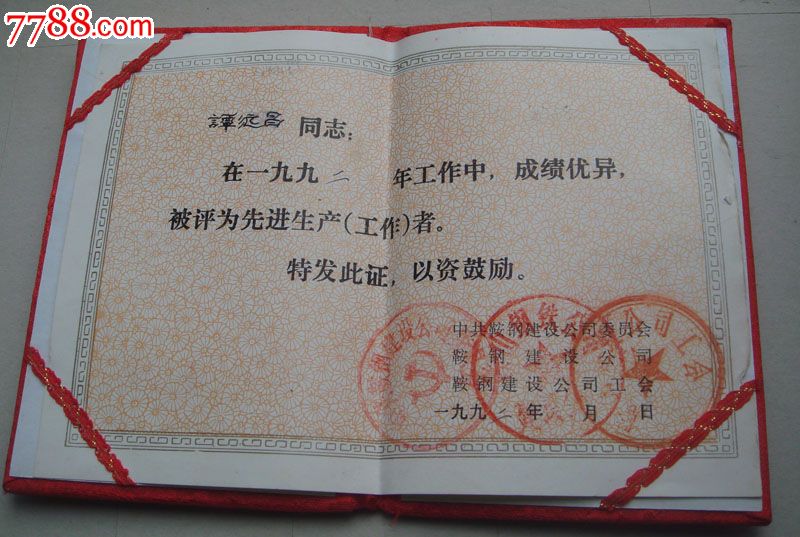 7788.com
譚定昌 同志:
在一九九二 年工作中, 成绩优异,
被评为先进生产(工作)者。
特发此证, 以资鼓励。
中共鞍钢建设公司委员会
鞍钢建设公司
鞍钢建设公司工会
一九九二年 月 日